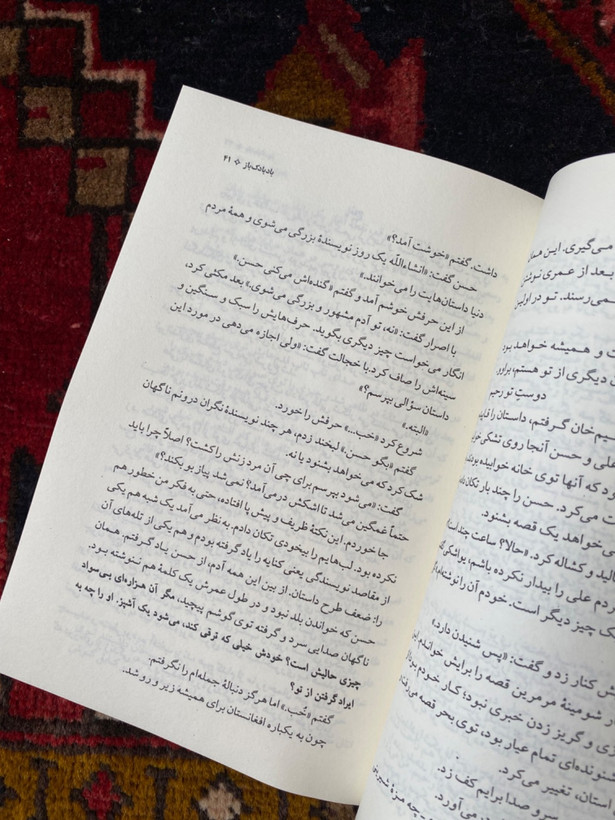 بادبادک‌باز ❖ ۴۱
داشت. گفتم «خوشت آمد؟»
حسن گفت: «انشاءالله یک روز نویسندهٔ بزرگی می‌شوی و همهٔ مردم
دنیا داستان‌هایت را می‌خوانند.»
از این حرفش خوشم آمد و گفتم «گنده‌اش می‌کنی حسن.»
با اصرار گفت: «نه، تو آدم مشهور و بزرگی می‌شوی.» بعد مکثی کرد،
انگار می‌خواست چیز دیگری بگوید. حرف‌هایش را سبک و سنگین و
سینه‌اش را صاف کرد. با خجالت گفت: «ولی اجازه می‌دهی در مورد این
داستان سؤالی بپرسم؟»
«البته.»
شروع کرد «خب...» حرفش را خورد.
گفتم «بگو حسن.» لبخند زدم، هر چند نویسندهٔ نگران درونم ناگهان
شک کرد که می‌خواهد بشنود یا نه.
گفت: «می‌شود بپرسم برای چی آن مرد زنش را کشت؟ اصلاً چرا باید
حتماً غمگین می‌شد تا اشکش درمی‌آمد؟ نمی‌شد پیاز بو بکند؟»
جا خوردم. این نکتهٔ ظریف و پیش پا افتاده، حتی به فکر من خطور هم
نکرده بود. لب‌هایم را بیخودی تکان دادم. به نظر می‌آمد یک شبه هم یکی
از مقاصد نویسندگی یعنی کنایه را یاد گرفته بودم و هم یکی از تله‌های آن
را: ضعف طرح داستان. از بین این همه آدم، از حسن یاد گرفتم. همان
حسن که خواندن بلد نبود و در طول عمرش یک کلمهٔ هم ننوشته بود.
ناگهان صدایی سرد و گرفته توی گوشم پیچید، مگر آن هزاره‌ای بی‌سواد
چیزی حالیش است؟ خودش خیلی که ترقی کند، می‌شود یک آشپز. او را چه به
ایراد گرفتن از تو؟
گفتم «خُب.» اما هرگز دنبالهٔ جمله‌ام را نگرفتم.
چون به یکباره افغانستان برای همیشه زیر و رو شد.
می‌گیری. این
بعد از عمری
می‌رسند. تو در
و همیشه خواهد بود
دیگری از تو هستم،
دوستِ تو
خان گرفتم، داستان را
علی و حسن آنجا روی تشکی
که آنها توی خانه خوابیده بودند
می‌کرد. حسن را چند بار تکان
می‌خواهد یک قصه بشنود.
مالید و کشاله کرد. «حالا؟ ساعت چند است
علی را بیدار نکرده باشم،
چیز دیگر است. خودم آن را نوشته‌ام
کنار زد و گفت: «پس شنیدن دارد»
شومینهٔ مرمرین قصه را برایش خواندم.
و گریز زدن خبری نبود؛ کار خودم بود
شنونده‌ای تمام عیار بود، توی بحر قصه می‌رفت
داستان، تغییر می‌کرد.
سر و صدا برایم کف زد.
می‌آورد.